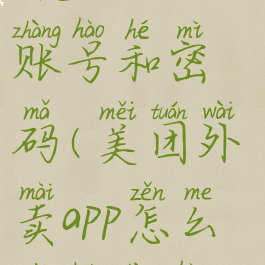 zhàng hào hé mì
账号和密
mǎ měi tuán wài
码(美团外
mài zěn me
卖app怎么